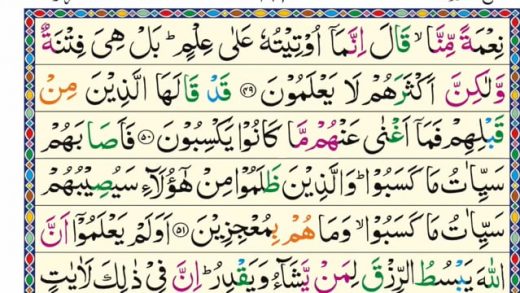 نِعْمَةً مِّنَّا ۙ قَالَ اِنَّمَاۤ اُوْتِيْتُهٗ عَلٰى عِلْمٍ ؕ بَلْ هِىَ فِتْنَةٌ
وَّلٰكِنَّ اَكْثَرَهُمْ لَا يَعْلَمُوْنَ ﴿۴۹﴾ قَدْ قَالَهَا الَّذِيْنَ مِنْ
قَبْلِهِمْ فَمَاۤ اَغْنٰى عَنْهُمْ مَّا كَانُوْا يَكْسِبُوْنَ ﴿۵۰﴾ فَاَصَابَهُمْ
سَيِّاٰتُ مَا كَسَبُوْا ؕ وَالَّذِيْنَ ظَلَمُوْا مِنْ هٰٓؤُلَآءِ سَيُصِيْبُهُمْ
سَيِّاٰتُ مَا كَسَبُوْا ۙ وَمَا هُمْ بِمُعْجِزِيْنَ ﴿۵۱﴾ اَوَلَمْ يَعْلَمُوْۤا اَنَّ
اللّٰهَ يَبْسُطُ الرِّزْقَ لِمَنْ يَّشَآءُ وَيَقْدِرُ ؕ اِنَّ فِىْ ذٰلِكَ لَاٰيٰتٍ